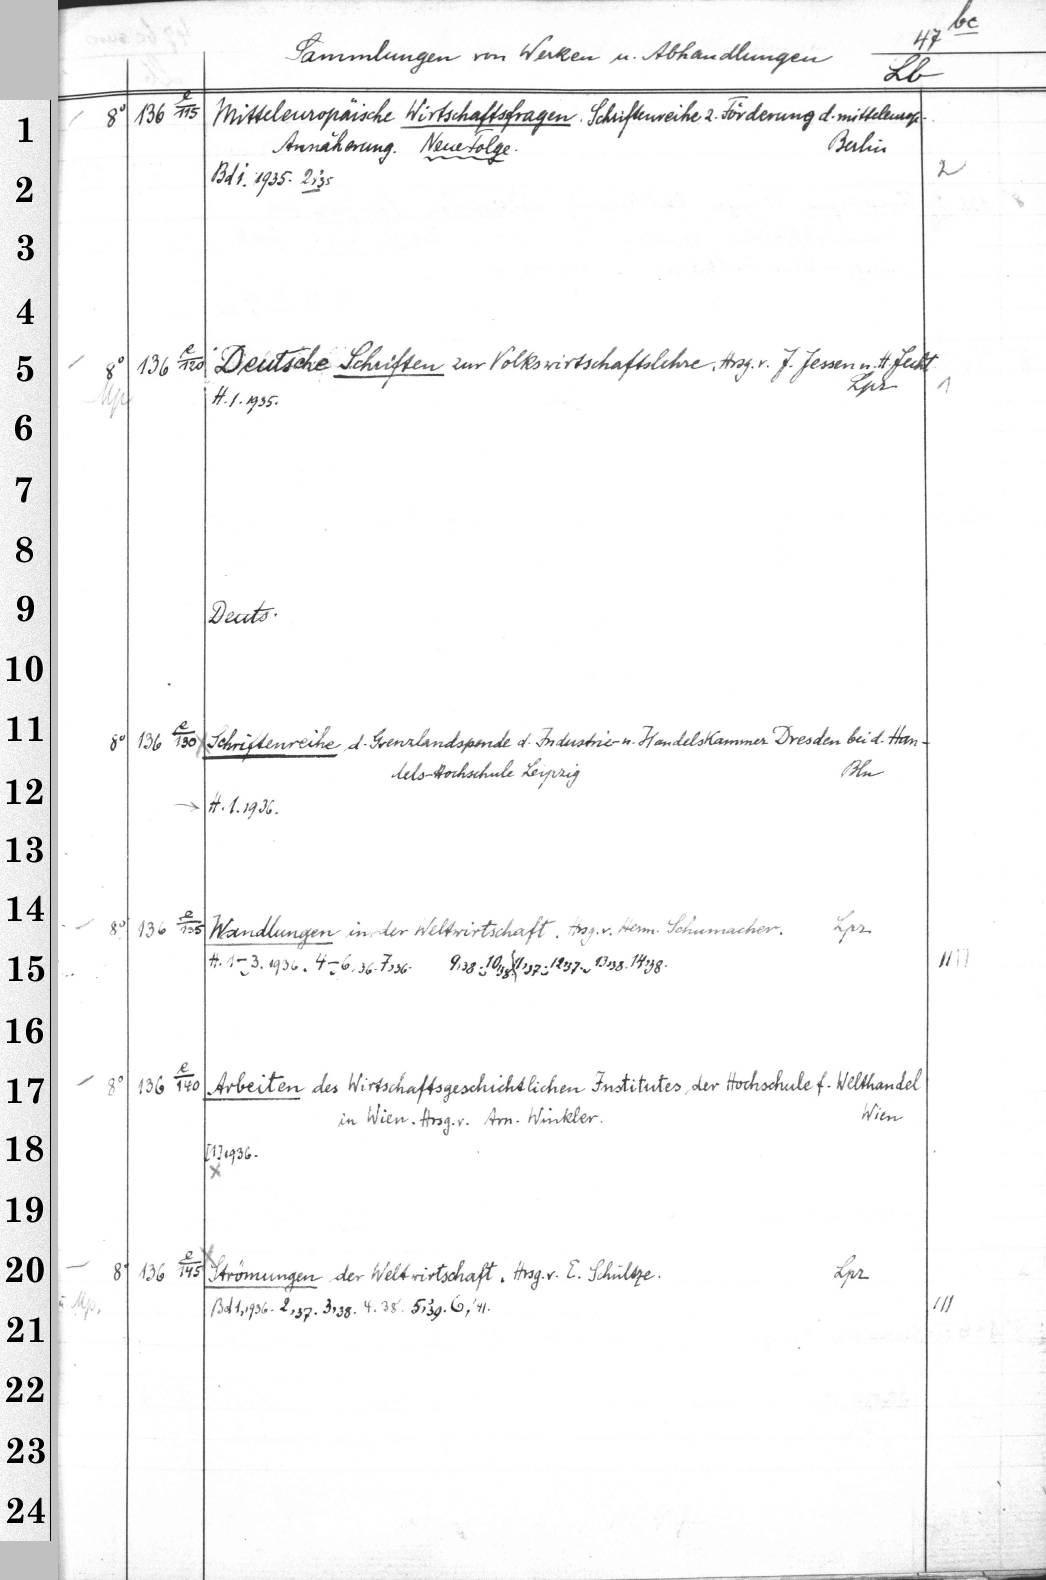 Sammlungen von Werken u. Abhandlungen 47 bc
Lb
1 8° 136 e/115 Mitteleuropäische Wirtschaftsfragen. Schriftenreihe z. Förderung d. mitteleurop.
Annäherung. Neue Folge. Berlin
2 Bd 1. 1935. 2,35 2
3
4
5 8° 136 e/120 Deutsche Schriften zur Volkswirtschaftslehre. Hrsg. v. J. Jessen u. H. Jecht
Lpz 1
Mp H. 1. 1935.
6
7
8
9 Deuts.
10
11 8° 136 e/130 Schriftenreihe d. Grenzlandspende d. Industrie- u. Handelskammer Dresden bei d. Han-
dels-Hochschule Leipzig Bln
12 → H. 1. 1936.
13
14 8° 136 e/135 Wandlungen in der Weltwirtschaft. Hrsg. v. Herm. Schumacher. Lpz
15 H. 1-3. 1936. 4-6,36. 7,36. 9,38. 10,38 11,37. 12,37. 13,38. 14,38. 1111
16
17 8° 136 e/140 Arbeiten des Wirtschaftsgeschichtlichen Institutes der Hochschule f. Welthandel
in Wien. Hrsg. v. Arn. Winkler. Wien
18 [1] 1936.
x
19
20 8° 136 e/145 x Strömungen der Weltwirtschaft. Hrsg. v. E. Schultze. Lpz
u. Mp. Bd 1,1936. 2,37. 3,38. 4.38. 5,39. 6,'41. 111
21
22
23
24